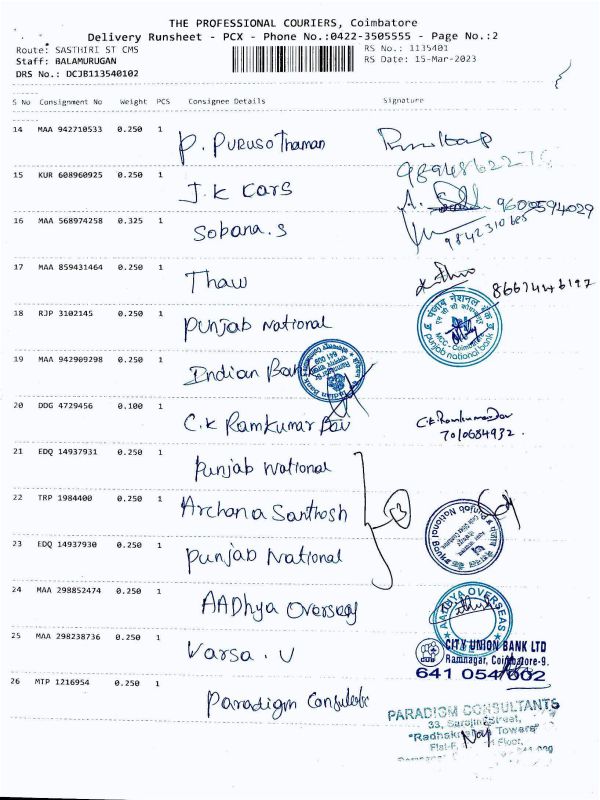 THE PROFESSIONAL COURIERS, Coimbatore
Delivery Runsheet - PCX - Phone No.:0422-3505555 - Page No.:2
Route: SASTHIRI ST CMS
RS No.: 1135401
Staff: BALAMURUGAN
RS Date: 15-Mar-2023
DRS No.: DCJB113540102
S No Consignment No Weight PCS Consignee Details Signature
14 MAA 942710533 0.250 1 P. Purusothaman
15 KUR 608960925 0.250 1 J.K Cars 9600594029
16 MAA 568974258 0.325 1 Sobana.S
17 MAA 859431464 0.250 1 Thaw
18 RJP 3102145 0.250 1 Punjab National
पंजाब नेशनल बैंक
MCC - Coimbatore
punjab national bank
19 MAA 942909298 0.250 1 Indian Bank
20 DDG 4729456 0.100 1 C.K Ramkumar Dav C.K. Ramkumar Dav
7010684932.
21 EDQ 14937931 0.250 1 Punjab National
22 TRP 1984400 0.250 1 Archana Santhosh
Punjab National Bank
23 EDQ 14937930 0.250 1 Punjab National
24 MAA 298852474 0.250 1 AADhya Overseas
AADHYA OVERSEAS
25 MAA 298238736 0.250 1 Varsa.V
CITY UNION BANK LTD
Ramnagar, Coimbatore-9.
641 054002
26 MTP 1216954 0.250 1 Paradigm Consultants
PARADIGM CONSULTANTS
33, Sarojini Street,